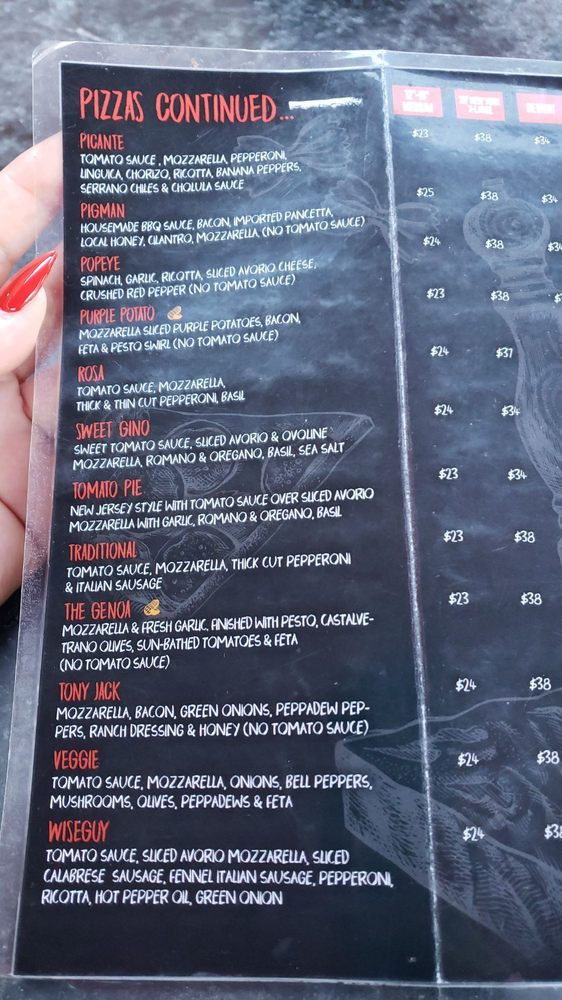 PIZZAS CONTINUED...
PICANTE
TOMATO SAUCE, MOZZARELLA, PEPPERONI,
LINGUICA, CHORIZO, RICOTTA, BANANA PEPPERS,
SERRANO CHILES & CHOLULA SAUCE
$23 $38 $34
PIGMAN
HOUSEMADE BBQ SAUCE, BACON, IMPORTED PANCETTA,
LOCAL HONEY, CILANTRO, MOZZARELLA (NO TOMATO SAUCE)
$25 $38 $34
POPEYE
SPINACH, GARLIC, RICOTTA, SLICED AVORIO CHEESE,
CRUSHED RED PEPPER (NO TOMATO SAUCE)
$24 $38 $34
PURPLE POTATO
MOZZARELLA SLICED PURPLE POTATOES, BACON,
FETA & PESTO SWIRL (NO TOMATO SAUCE)
$23 $38
ROSA
TOMATO SAUCE, MOZZARELLA,
THICK & THIN CUT PEPPERONI, BASIL
$24 $37
SWEET GINO
SWEET TOMATO SAUCE, SLICED AVORIO & OVOLINE
MOZZARELLA, ROMANO & OREGANO, BASIL, SEA SALT
$24 $34
TOMATO PIE
NEW JERSEY STYLE WITH TOMATO SAUCE OVER SLICED AVORIO
MOZZARELLA WITH GARLIC, ROMANO & OREGANO, BASIL
$23 $34
TRADITIONAL
TOMATO SAUCE, MOZZARELLA, THICK CUT PEPPERONI
& ITALIAN SAUSAGE
$23 $38
THE GENOA
MOZZARELLA & FRESH GARLIC. FINISHED WITH PESTO, CASTALVE-
TRANO OLIVES, SUN-BATHED TOMATOES & FETA
(NO TOMATO SAUCE)
$23 $38
TONY JACK
MOZZARELLA, BACON, GREEN ONIONS, PEPPADEW PEP-
PERS, RANCH DRESSING & HONEY (NO TOMATO SAUCE)
$24 $38
VEGGIE
TOMATO SAUCE, MOZZARELLA, ONIONS, BELL PEPPERS,
MUSHROOMS, OLIVES, PEPPADEWS & FETA
$24 $38
WISEGUY
TOMATO SAUCE, SLICED AVORIO MOZZARELLA, SLICED
CALABRESE SAUSAGE, FENNEL ITALIAN SAUSAGE, PEPPERONI,
RICOTTA, HOT PEPPER OIL, GREEN ONION
$24 $38